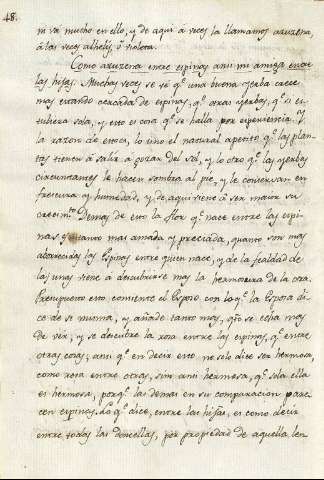 48.
ni va mucho en ello, y de aquí à veces la llamamos azuzena,
à las veces alhelí, ò violeta.
Como azuzena entre espinas ansi mi amiga entre
las hijas. Muchas veces se vè q.e una buena yerba crece
mas estando cercada de espinas, q.e otras yerbas, q.e si es-
tubiera sola, y esto es cosa q.e se halla por experiencia. Y
la razon de ello, lo uno el natural apetito q.e las plan-
tas tienen à salir a gozar del sol, y lo otro q.e las yerbas
circunstantes le hacen sombra al pie, y le conservan en
frescura y humedad, y de aqui viene à ser mayor su
crecim.to Demas de esto la flor q.e nace entre las espi-
nas, es tanto mas amada y preciada, quanto son mas
aborrecidas las Espinas entre quien nace, y de la fealdad de
las unas viene à descubrirse mas la hermosura de la otra.
Presupuesto esto consiente el Esposo con lo q.e la Esposa di-
ce de si misma, y añade tanto mas, q.to se echa mas
de ver, y se descubre la rosa entre las espinas, q.e entre
otras cosas, ansi q.e en decir esto no solo dice ser hermosa,
como rosa entre otras, sino ansi hermosa, q.e sola ella
es hermosa, porq.e las demas en su comparacion pare-
cen espinas. Lo q.e dice, entre las hijas, es como decir
entre todas las doncellas, por propiedad de aquella len